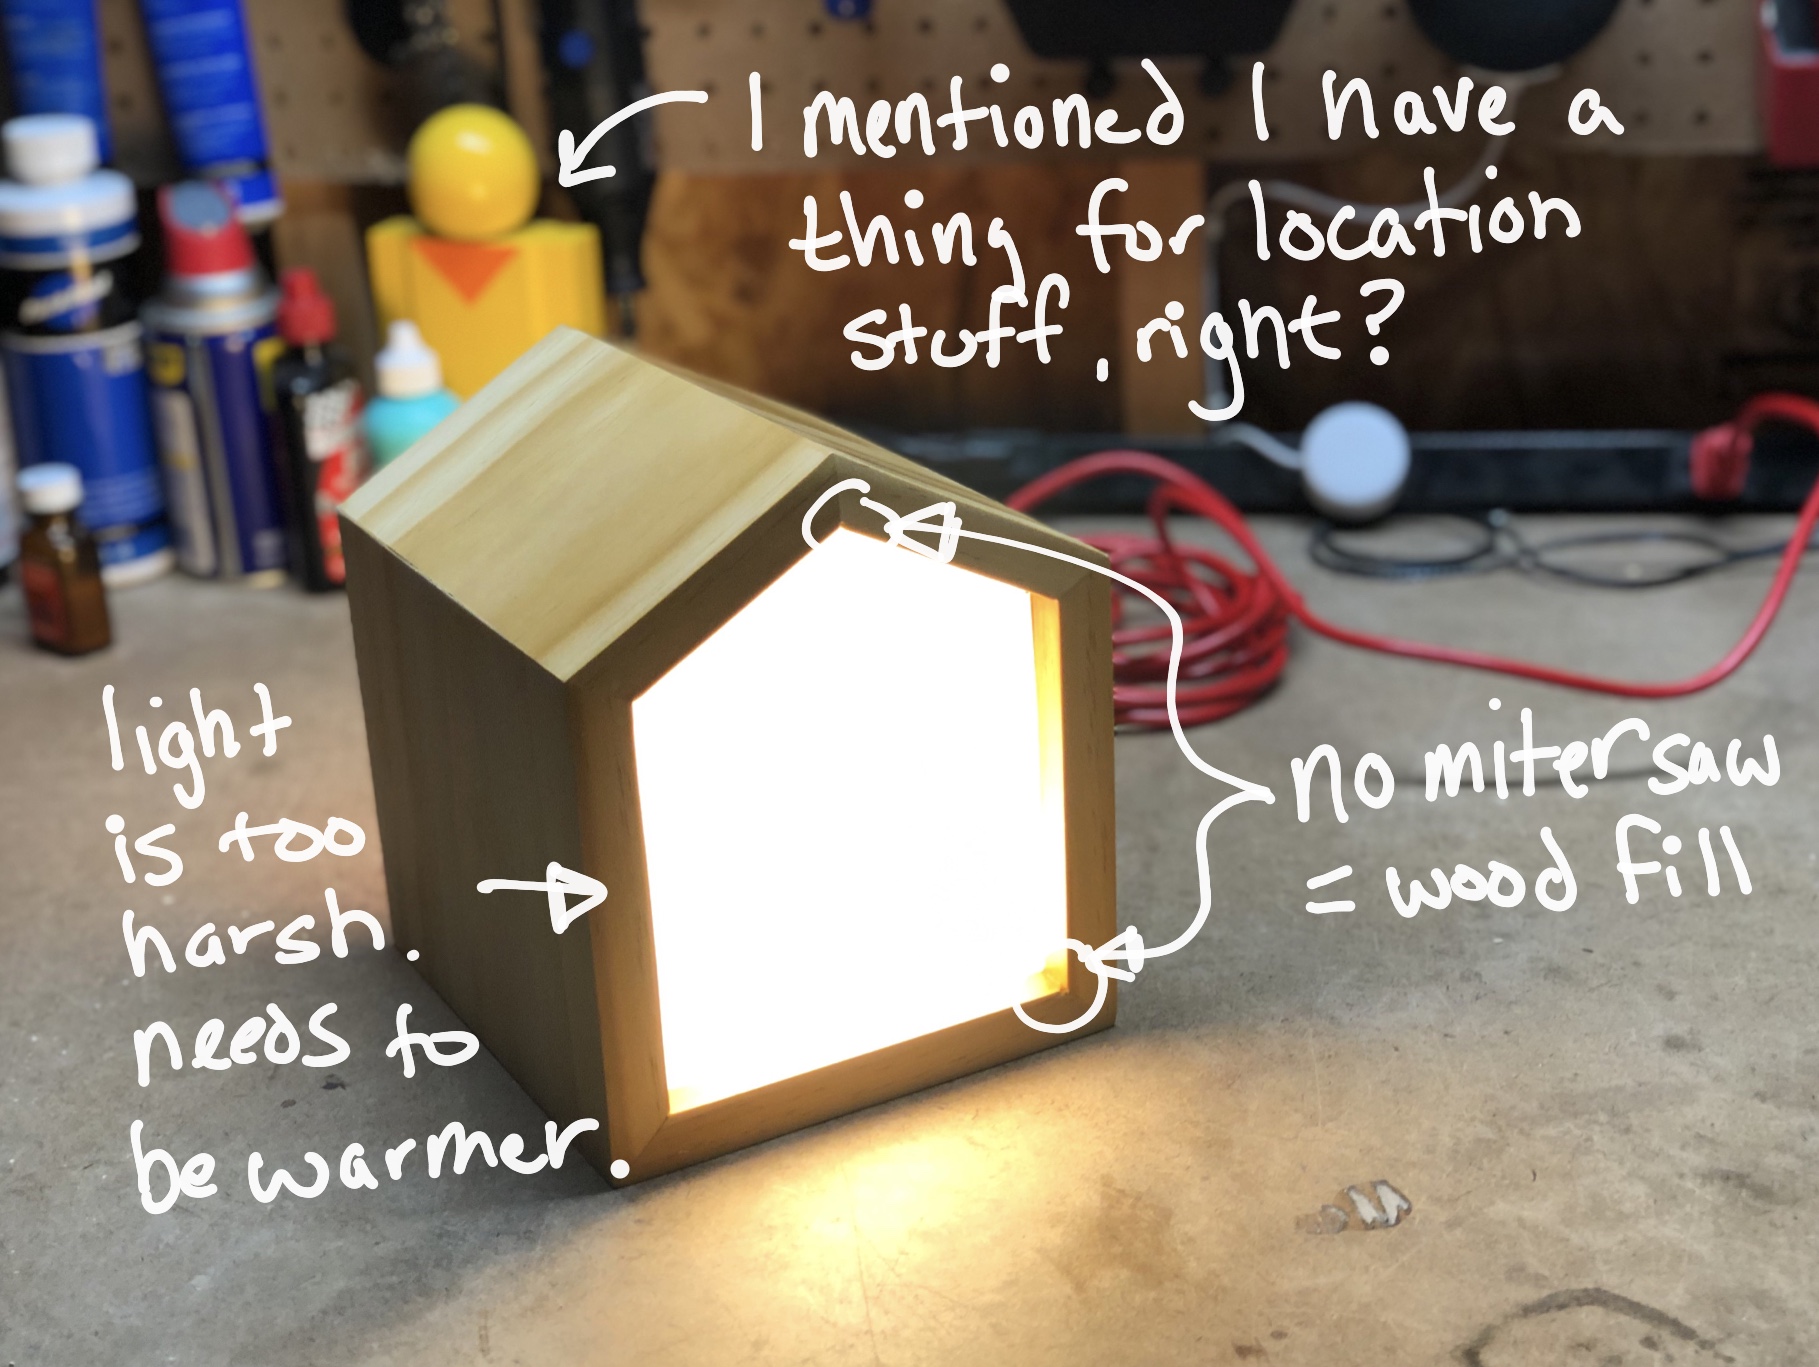 I mentioned I have a
thing for location
stuff, right?
light
is too
harsh.
needs to
be warmer.
no miter saw
= wood fill